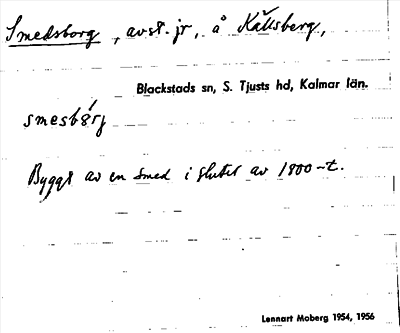 Smedsborg, avst. jr, å Källsberg,
Blackstads sn, S. Tjusts hd, Kalmar län.
Byggt av en smed i slutet av 1800-t.
Lennart Moberg 1954, 1956